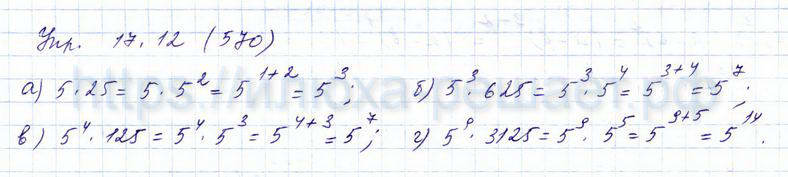 Упр. 17.12 (570)
а) 5·25 = 5·5² = 5¹⁺² = 5³; б) 5³·625 = 5³·5⁴ = 5³⁺⁴ = 5⁷;
в) 5⁴·125 = 5⁴·5³ = 5⁴⁺³ = 5⁷; г) 5⁹·3125 = 5⁹·5⁵ = 5⁹⁺⁵ = 5¹⁴.